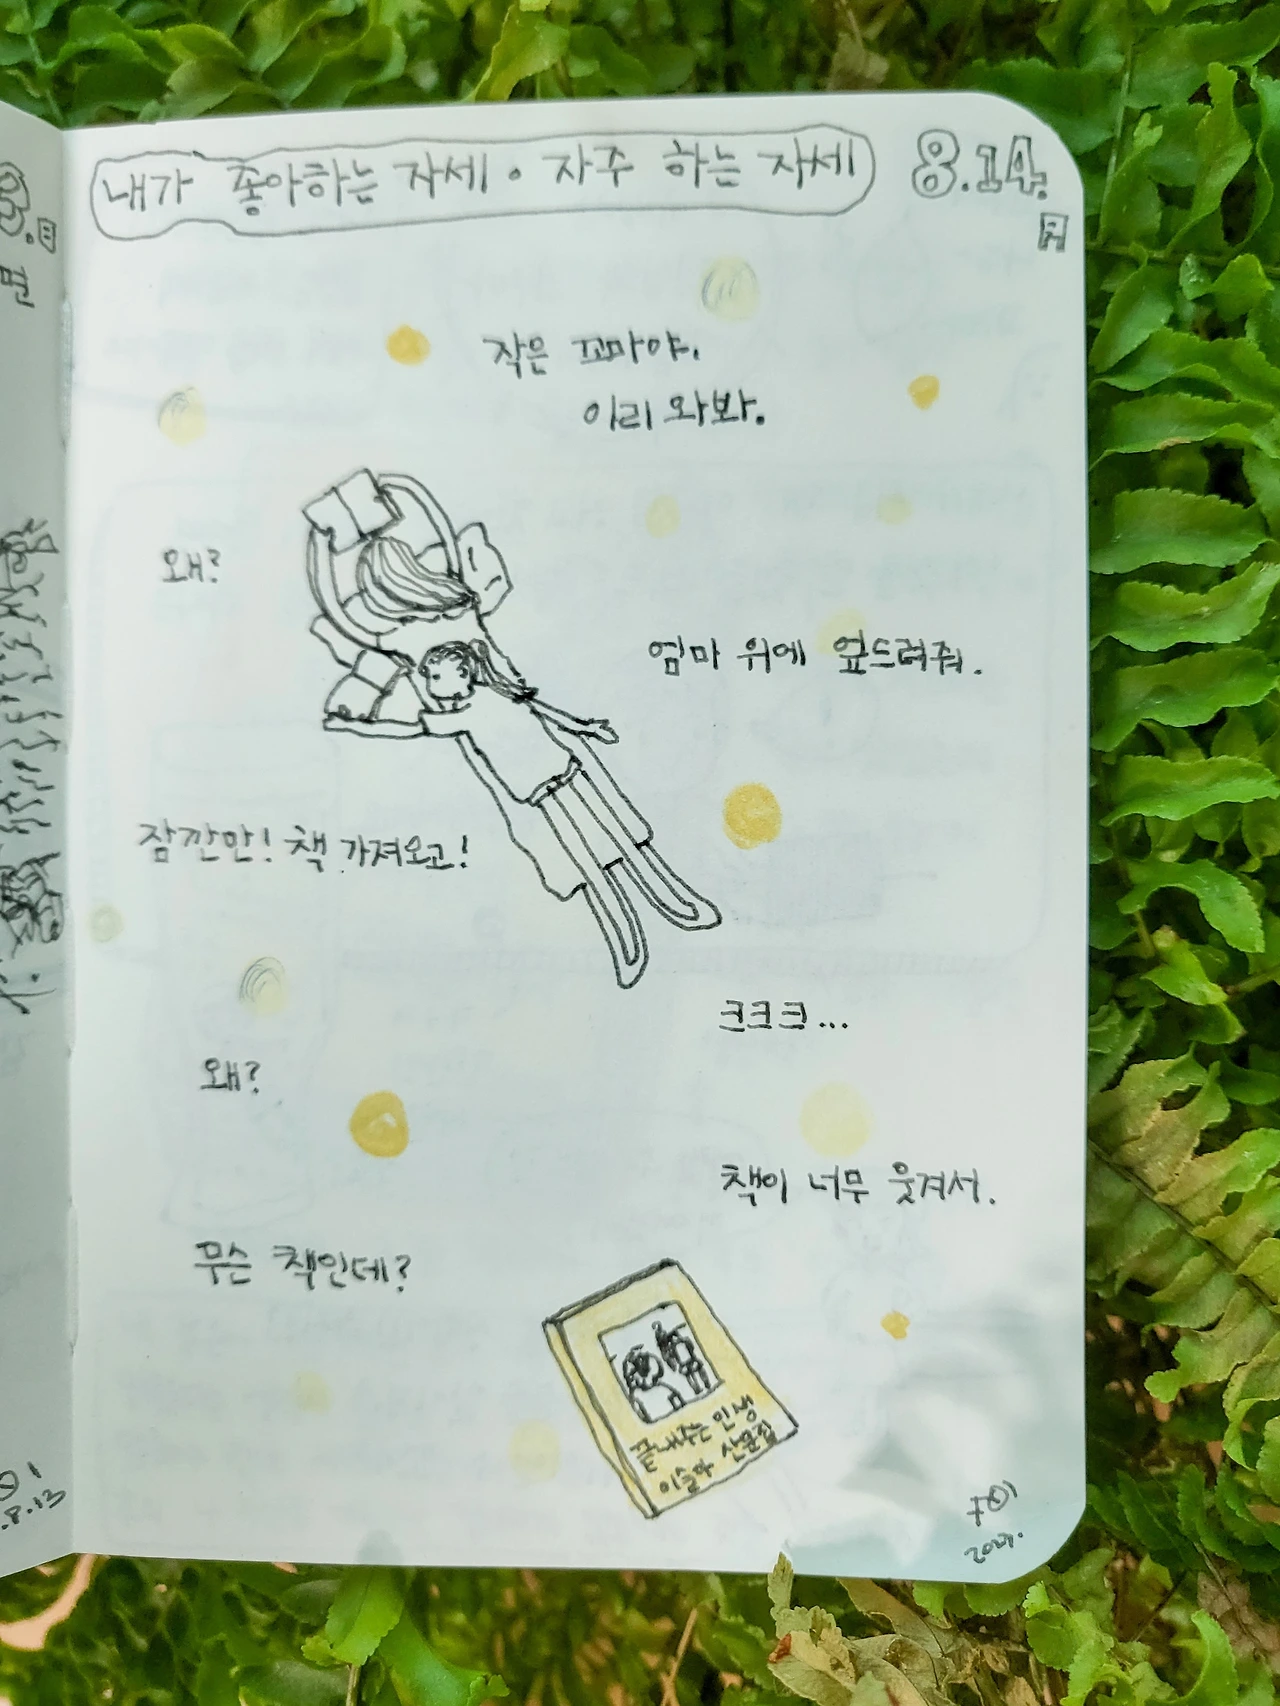 내가 좋아하는 자세 · 자주 하는 자세
8.14.
월
작은 꼬마야.
이리 와봐.
왜?
엄마 위에 엎드려줘.
잠깐만! 책 가져오고!
크크크...
왜?
책이 너무 웃겨서.
무슨 책인데?
끝내주는 인생
이슬아 산문집
면
8.13